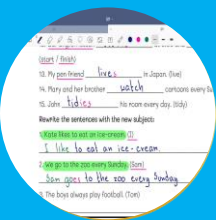 (start / finish)
13. My pen friend lives in Japan. (live)
14. Mary and her brother watch cartoons every
15. John tidies his room every day. (tidy)
Rewrite the sentences with the new subject:
1. Kate likes to eat an ice-cream. (I)
I like to eat an ice-cream.
2. We go to the zoo every Sunday. (Sam)
Sam goes to the zoo every Sunday
3. The boys always play football. (Tom)